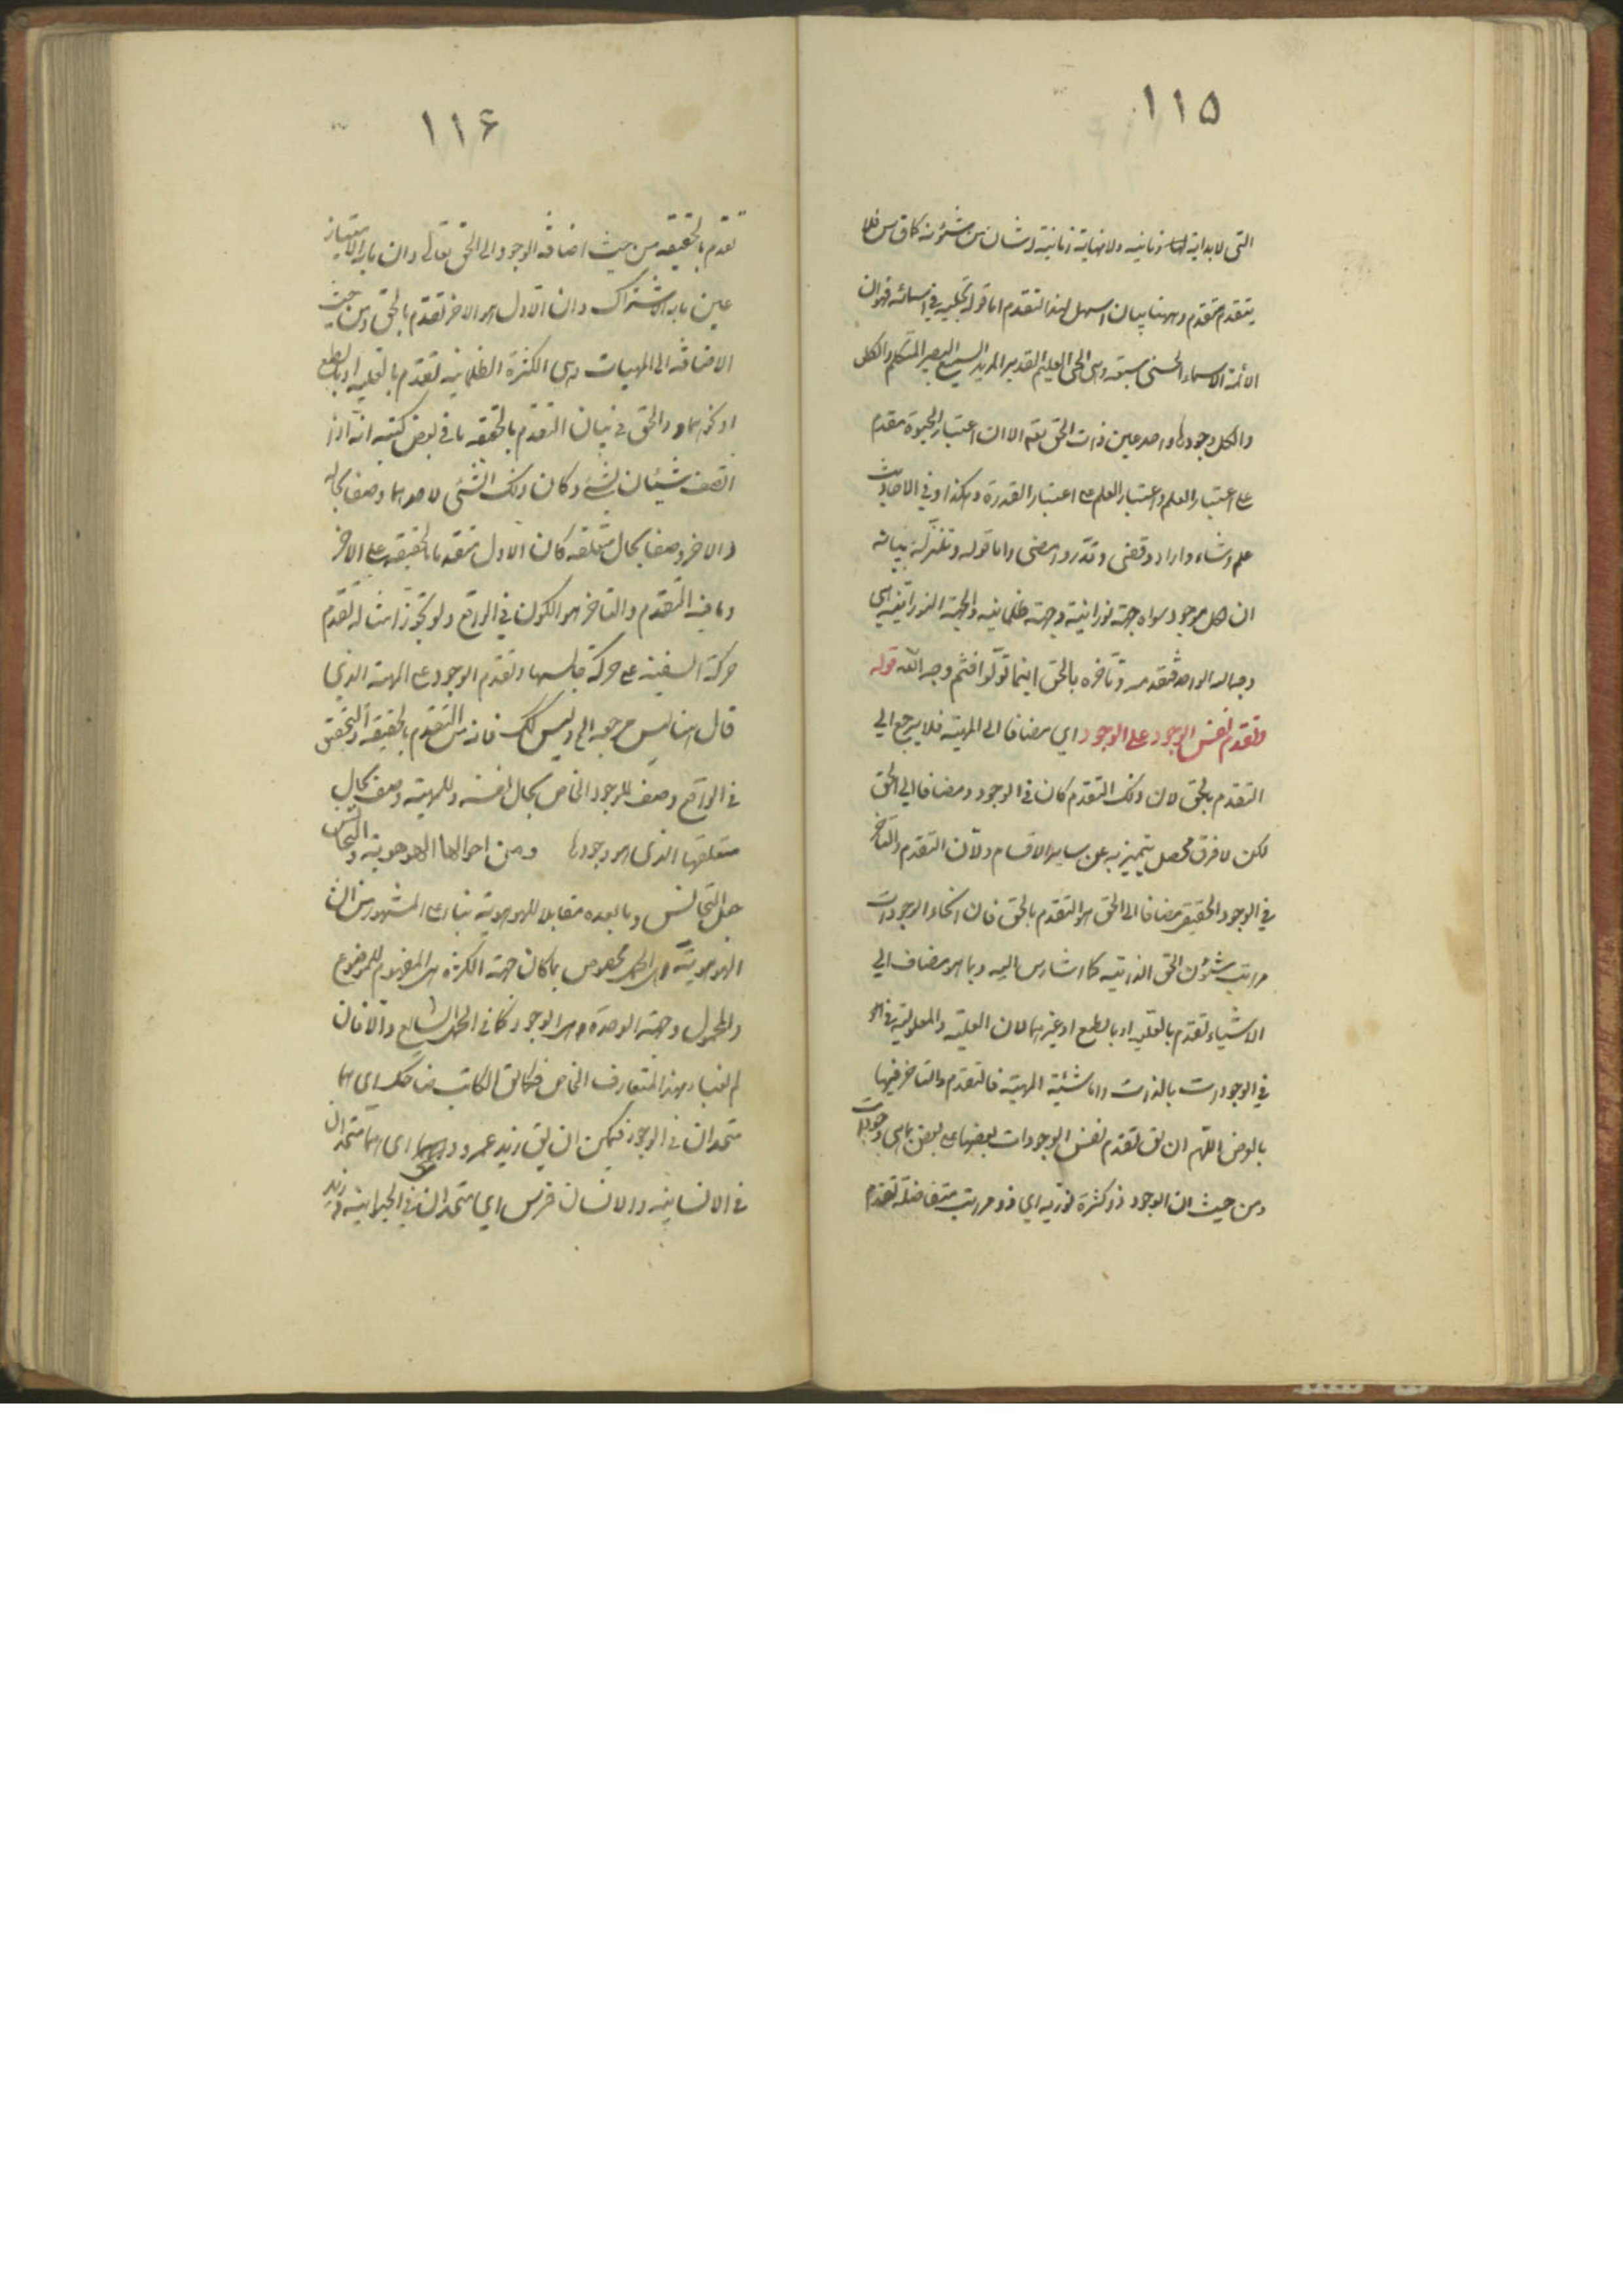 ١١٥
التى لا بداية لها زمانيه ولا نهاية زمانية وشان من شئونه كما ق س فلا
يتقدم متقدم وههنا بيان اسهل لهذا التقدم اما قوله تجليه في اسمائه فهو ان
الائمة الاسماء الحسنى سبعة وهى الحى العليم القدير المريد السميع البصير المتكلم والكل
والكل وجودها واحد عين ذات الحق تعه الا ان اعتبار الحيوة مقدم
على اعتبار العلم واعتبار العلم على اعتبار القدرة وهكذا وفي الاحاديث
علم وشاء واراد وقضى وقدّر وامضى واما قوله وتنزله بيانه
ان كل موجود سواه جهة نورانية وجهة ظلمانيه والجهة النورانية هى
وجه الله الواحد فتقدمه وتاخره بالحق اينما تولّوا فثمّ وجه الله قوله
وتقدم نفس الوجود على الوجود اي مضافا الى المهيّة فلا يرجع الي
التقدم بالحق لان ذلك التقدم كان في الوجود ومضافا الي الحق
لكن لا فرق محصل يتميز به عن ساير الاقسام ولان التقدم والتاخر
في الوجود الحقيقى مضافا الى الحق هو التقدم بالحق فان انحاء الوجودات
مراتب شئون الحق الذاتية كما اشار س اليه وبما هو مضاف الي
الاشياء تقدم بالعلية او بالطبع او غيرهما لان العلية والمعلولية انما هو
في الوجودات بالذات واما شيئية المهية فالتقدم والتاخر فيها
بالعرض اللّهم ان يق تقدم نفس الوجودات بعضها على بعض بما هى وجودات
ومن حيث ان الوجود ذو كثرة نورية اي ذو مراتب متفاضلة تقدم
١١۶
تقدم بالحقيقه من حيث اضافة الوجود الى الحق تعالى وان ما به الامتياز
عين ما به الاشتراك وان الاول هو الاخر تقدّم بالحق ومن حيث
الاضافة الى المهيات وهى الكثرة الظلمانية تقدّم بالعلية او بالطبع
او نحوهما والحق في بيان التقدّم بالحقيقه ما في بعض كتبه انّه اذا
اتصف شيئان بشئ وكان ذلك الشئ لاحدهما وصفا بحاله
والاخر وصفا بحال متعلقه كان الاول متقدما بالحقيقه على الاخر
وما فيه التقدم والتاخر هو الكون في الواقع ولو تجوّزا مثاله تقدم
حركة السفينة على حركة جالسها وتقدم الوجود على المهية الذي
قال انه ليس مرجعه الى وليس كك فانه من التقدم بالحقيقه اذ التحقق
في الواقع وصف للوجود الخاص بحال نفسه وللمهيته وصف بحال
متعلقها الذى هو وجودها ومن احوالها الهوهوية والتجانس
جعل التجانس وما بعده مقابلا للهوهوية بناء على المشهور من ان
الهوهوية هى الحمل مخصوص بما كان جهة الكثرة هى المفهوم للموضوع
والمحمول وجهة الوحدة هى الوجود كما في الحمل الشايع والا فان
لم نعبا بهذا المتعارف الخاص فكما يق الكاتب ضاحك اى هما
متحدان في الوجود فيمكن ان يق زيد عمرو اى هما متحدان
في الانسانية والانسان فرس اي متحدان في الحيوانية وزيد